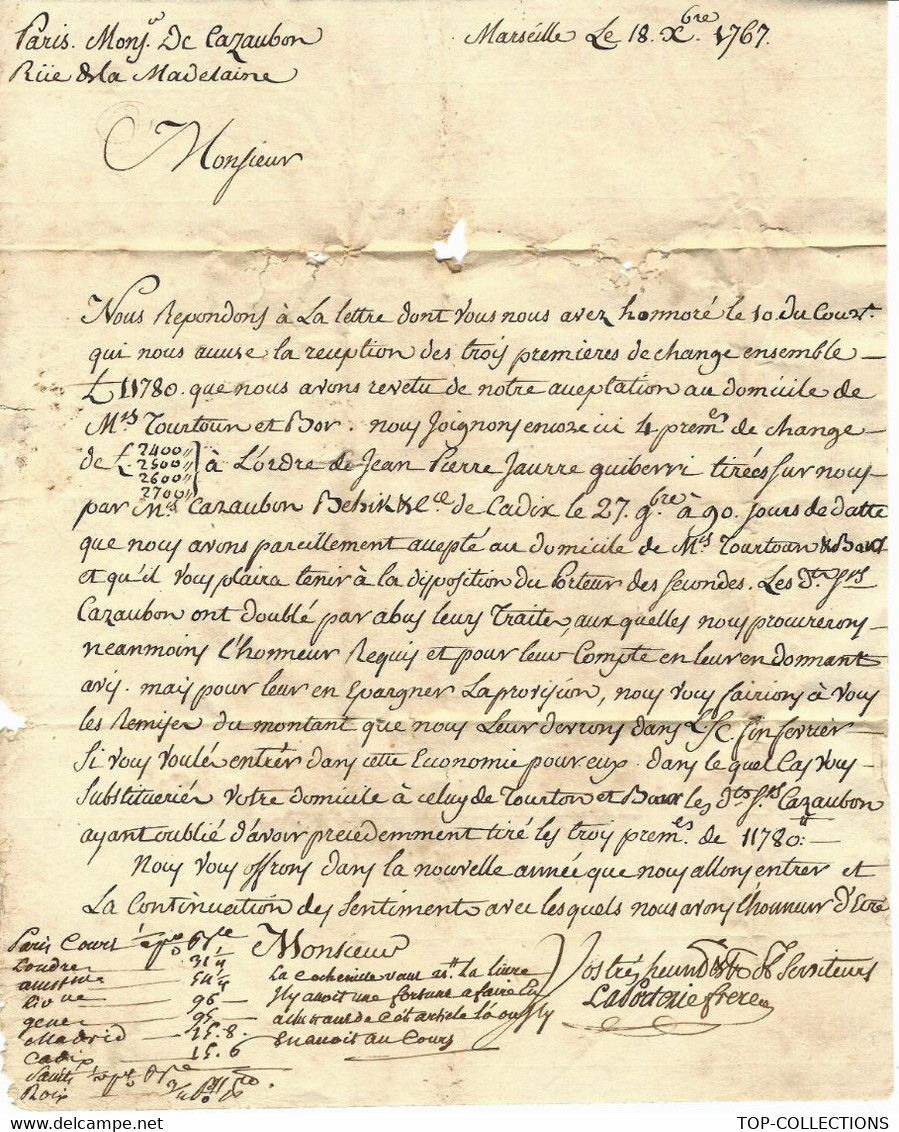 Paris. Mons.r De Cazaubon
Rüe de la Madelaine
Marseille Le 18. Xbre 1767.
Monsieur
Nous Repondons à La lettre dont vous nous avez honnoré le 10. du Cour.t
qui nous accuse la reception des trois premieres de change ensemble
₶ 11780. que nous avons revetu de notre acceptation au domicile de
Mrs Tourton et Bor. nous Joignons encore ici 4 premes de change
de ₶ 2400 ″
2500 ″
2600 ″
2700 ″
à L'ordre de Jean Pierre Jaurre guiberri tirées sur nous
par Mrs Cazaubon Behik & Ce de Cadix le 27. 9bre à 90. Jours de datte
que nous avons pareillement accepté au domicile de Mrs Tourton & Baur
et qu'il vous plaira tenir à la disposition du Porteur des secondes. Les d.ts Srs
Cazaubon ont doublé par abus leurs Traites, aux quelles nous procurerons
neanmoins l'honneur Requis et pour leur Compte en leur en donnant
avis. mais pour leur en Epargner La provision, nous vous fairions à vous
les Remises du montant que nous Leur devrons dans L/C. fin fevrier
Si vous voulé entrér dans cette Economie pour eux. dans le quel Cas vous
substitueriés votre domicile à celuy de Tourton et Baur les d.ts Srs Cazaubon
ayant oublié d'avoir precedemment tiré les trois premes. de 11780 ₶.
Nous vous offrons dans la nouvelle année que nous allons entrer et
La Continuation des Sentiments avec les quels nous avons l'honneur d'Etre
Monsieur
Paris Cours
Londres 31 1/4
amst.me 54 1/4
Livone 96
genes 95
Madrid 15.8.
Cadix 15.6
La Cochenille vaut la livre
Il y auoit une fortune a faire
article
En auoit au Cours
Vos très humbles & ob. Serviteurs
Laportorie freres
TOP-COLLECTIONS